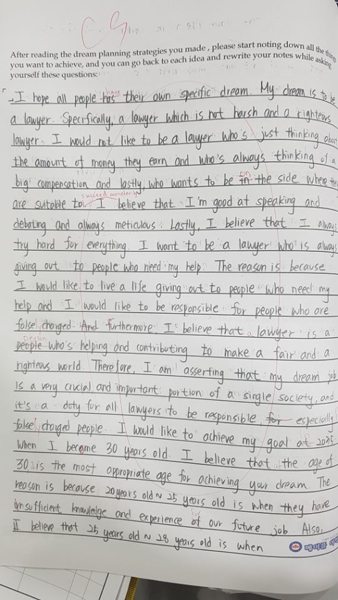 After reading the dream planning strategies you made, please start noting down all the things
you want to achieve, and you can go back to each idea and rewrite your notes while asking
yourself these questions:
I hope all people has their own specific dream. My dream is to be
a lawyer. Specifically, a lawyer which is not harsh and a righteous
lawyer. I would not like to be a lawyer who's just thinking about
the amount of money they earn and who's always thinking of a
big compensation and lastly, who wants to be in the side where
are suitable to. I believe that I'm good at speaking and
debating and always meticulous. Lastly, I believe that I always
try hard for everything. I want to be a lawyer who is always
giving out to people who need my help. The reason is because
I would like to live a life giving out to people who need my
help and I would like to be responsible for people who are
false charged. And furthermore, I believe that lawyer is a
people who's helping and contributing to make a fair and a
righteous world. Therefore, I am asserting that my dream job
is a very crucial and important portion of a single society, and
it's a duty for all lawyers to be responsible for especially
false charged people. I would like to achieve my goal at
When I became 30 years old. I believe that the age of
30 is the most appropriate age for achieving your dream. The
reason is because 20 years old ~ 25 years old is when they have
insufficient knowledge and experience of our future job. Also,
I believe that 25 years old ~ 28 years old is when